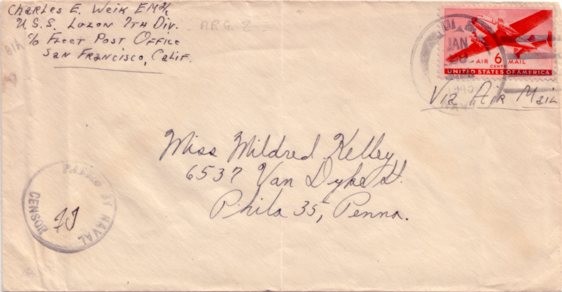 Charles E. Weik EM 2/c
U.S.S. Luzon 7th Div.
c/o Fleet Post Office
San Francisco, Calif.
A.R.G. 2
JAN
AIR 6 MAIL
CENTS
UNITED STATES OF AMERICA
Via Air Mail
Miss Mildred Kelley
6537 Van Dyke St.
Phila 35, Penna.
PASSED BY NAVAL
CENSOR